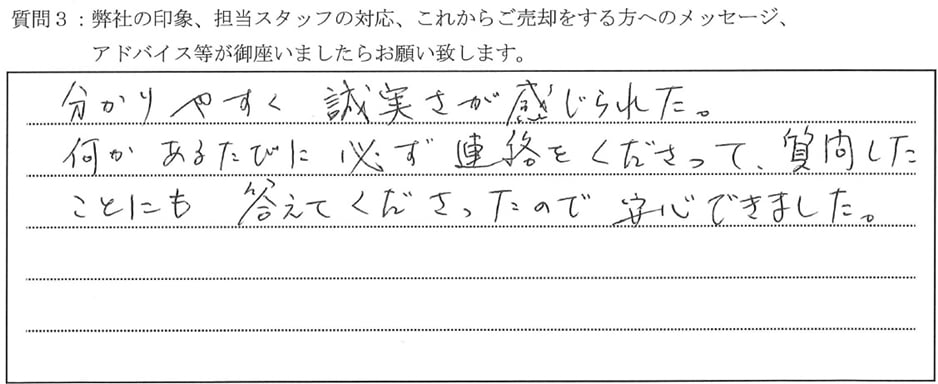 質問３：弊社の印象、担当スタッフの対応、これからご売却をする方へのメッセージ、
アドバイス等が御座いましたらお願い致します。
分かりやすく 誠実さが感じられた。
何かあるたびに必ず連絡をくださって、質問した
ことにも 答えてくださったので安心できました。